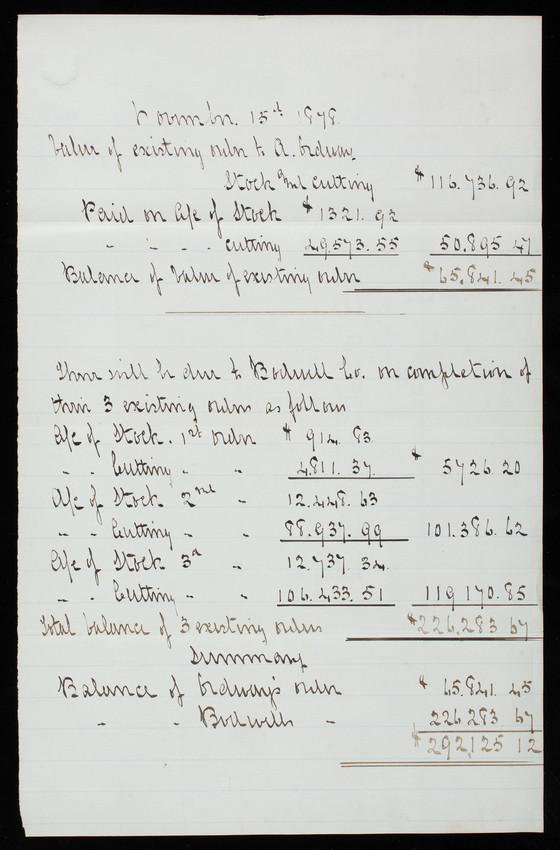 Novembr. 15th 1878
Value of existing order to A. Ordway.
Stock and cutting $116.736.92
Paid on a/c of Stock $1321.92
" " " " cutting 49573.55 50.895 47
Balance of Value of existing order $65.841.45
There will be due to Bodwell Co. on completion of
their 3 existing orders as follows
A/c of Stock. 1st order $ 914.83
" " Cutting " " 4811.37. $ 5726.20
A/c of Stock 2nd " 12.448.63
" " Cutting " " 88.937.99 101.386.62
A/c of Stock 3d " 12.737.34
" " Cutting " " 106.433.51 119170.85
Total balance of 3 existing orders $226.283 67
Summary
Balance of Ordway's order $ 65.841.45
" " Bodwells " 226.283 67
$292,125 12